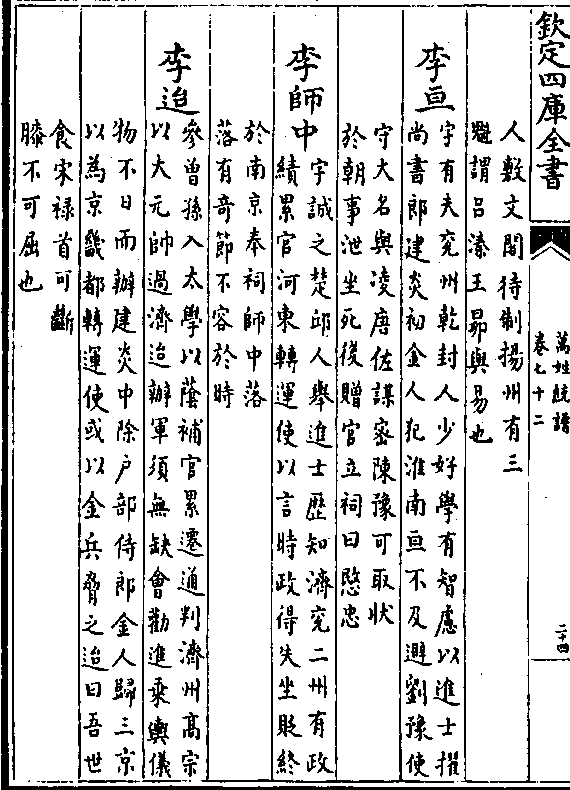 欽定四庫全書
萬姓統譜
卷七十二
二十四
人數文閣待制揚州有三
魁謂吕溱王昻與易也
李亘
字有夫兖州乾封人少好學有智慮以進士擢
尚書郎建炎初金人犯淮南亘不及避劉豫使
守大名與凌唐佐謀密陳豫可取狀
於朝事泄坐死後贈官立祠曰愍忠
李師中
字誠之楚邱人舉進士歴知濟兖二州有政
績累官河東轉運使以言時政得失坐貶終
於南京奉祠師中落
落有竒節不容於時
李迨
參曽孫入太學以蔭補官累遷通判濟州髙宗
以大元帥過濟迨辦軍須無缺會勸進乘輿儀
物不日而辦建炎中除户部侍郎金人歸三京
以為京畿都轉運使或以金兵脅之迨曰吾世
食宋禄首可斷
膝不可屈也